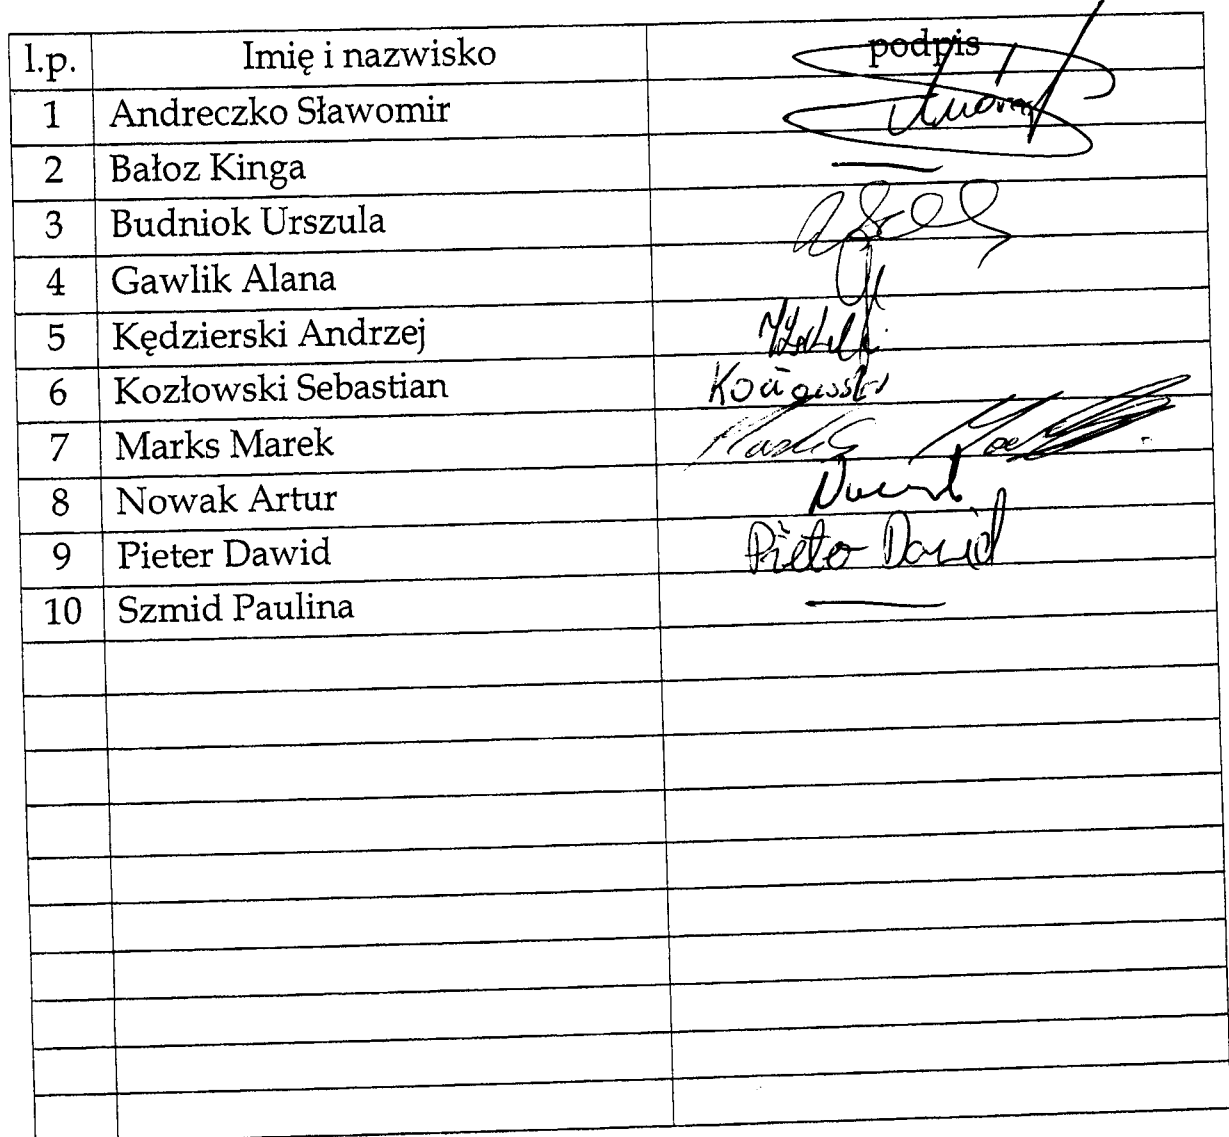 l.p. Imię i nazwisko podpis
1 Andreczko Sławomir
2 Bałoz Kinga
3 Budniok Urszula
4 Gawlik Alana
5 Kędzierski Andrzej
6 Kozłowski Sebastian
7 Marks Marek
8 Nowak Artur
9 Pieter Dawid
10 Szmid Paulina